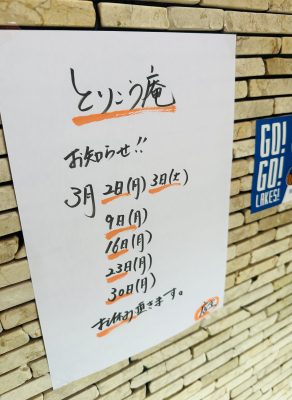 とりこう庵
お知らせ!!
3月 2日(月) 3日(火)
9日(月)
16日(月)
23日(月)
30日(月)
お休み頂きます。
GO!
GO!
LAKES!